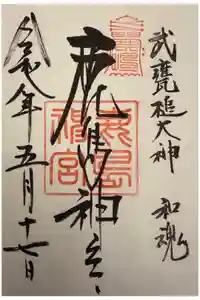 武甕槌大神 和魂
鹿島神宮
鹿島神宮
令 年五月十七日